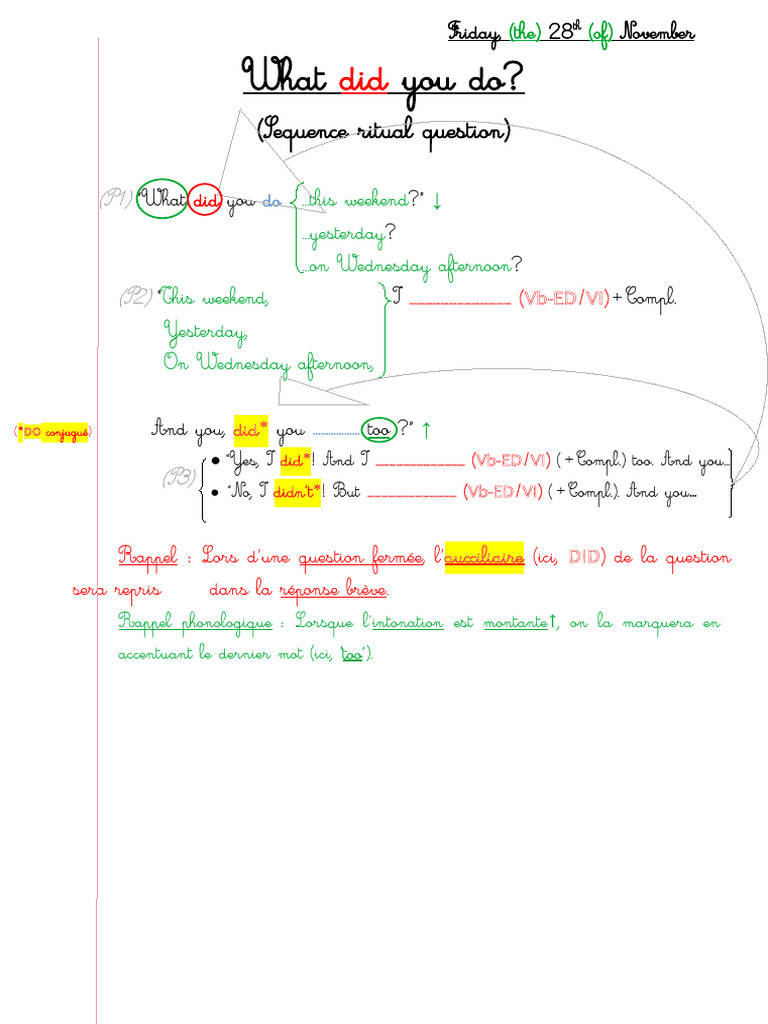 Friday, (the) 28th (of) November
What did you do?
(Sequence ritual question)
(P1) "What did you do { ...this weekend?" ↓
...yesterday?
...on Wednesday afternoon?
(P2) "This weekend, } I _______________ (Vb-ED/VI)+Compl.
Yesterday,
On Wednesday afternoon,
(*DO conjugué) And you, did* you ............... too ?" ↑
(P3) { • "Yes, I did*! And I _______________ (Vb-ED/VI) (+Compl.) too. And you...
• "No, I didn't*! But _______________ (Vb-ED/VI) (+Compl.). And you...
Rappel : Lors d'une question fermée, l'auxiliaire (ici, DID) de la question
sera repris dans la réponse brève.
Rappel phonologique : Lorsque l'intonation est montante↑, on la marquera en
accentuant le dernier mot (ici, 'too').